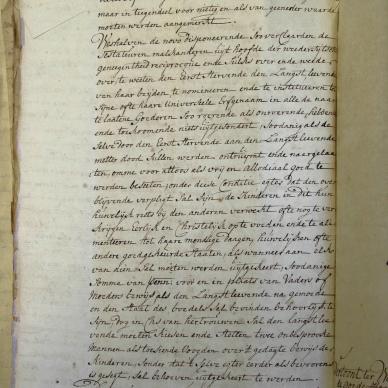 maar in tegendeel voor nietig en als van geender waarde
moeten werden aangemerkt
de novo disponeerende Soo verclaarden de
Testateuren malkanderen uijt hoofde der wederzytsche
geneegentheid reciprocie ende Sulks over ende weder
over te weeten den Eerst Stervende den Langst Leevende
van haar beijden te nomineeren ende te institueeren tot
Syne ofte haare Universeele Erfgenaam in alle de naar
te laatene Goederen Soo roerende als onroerende, hebbende
ende toekomende niets uijtgesondert, Soodanig als de
Selve door den Eerst Stervende aan den Langstleevende
metter dood Sullen werden ontruijmt ende naergelaa
ten, omme voor altoos als vrij en allodiaal goed te
werden beseten, onder deese Conditie egter dat den over
blyvende verpligt Sal Syn, de Kinderen in dit hun
huwelijk reets bij den anderen verwekt ofte nog te ver
krygen Eerlijk en Christelijk op te voeden ende te ali
menteeren tot haare mondige daagen, huwelijken ofte
andere goedgekeurde Staaten, als wanneer aan elk
van hun Sal moeten werden uijtgekeert, Soodanige
Somme van penn: voor en in plaats van Vaders of
Moeders bewijs als den Langst leevende na gemoede
en den Staat des boedels Sal bevinden behoorlijk te
Syn, dog in Cas van hertrouwen Sal den langst lee
vende moeten kiesen ende Stellen twee onbesprooke
mannen als toesiende voogden over 't gedagte bewijs der
Kinderen, Sonder dat 't Selve eerder als bevoorens
is gesegt, Sal behoeven uijtgekeert te werden